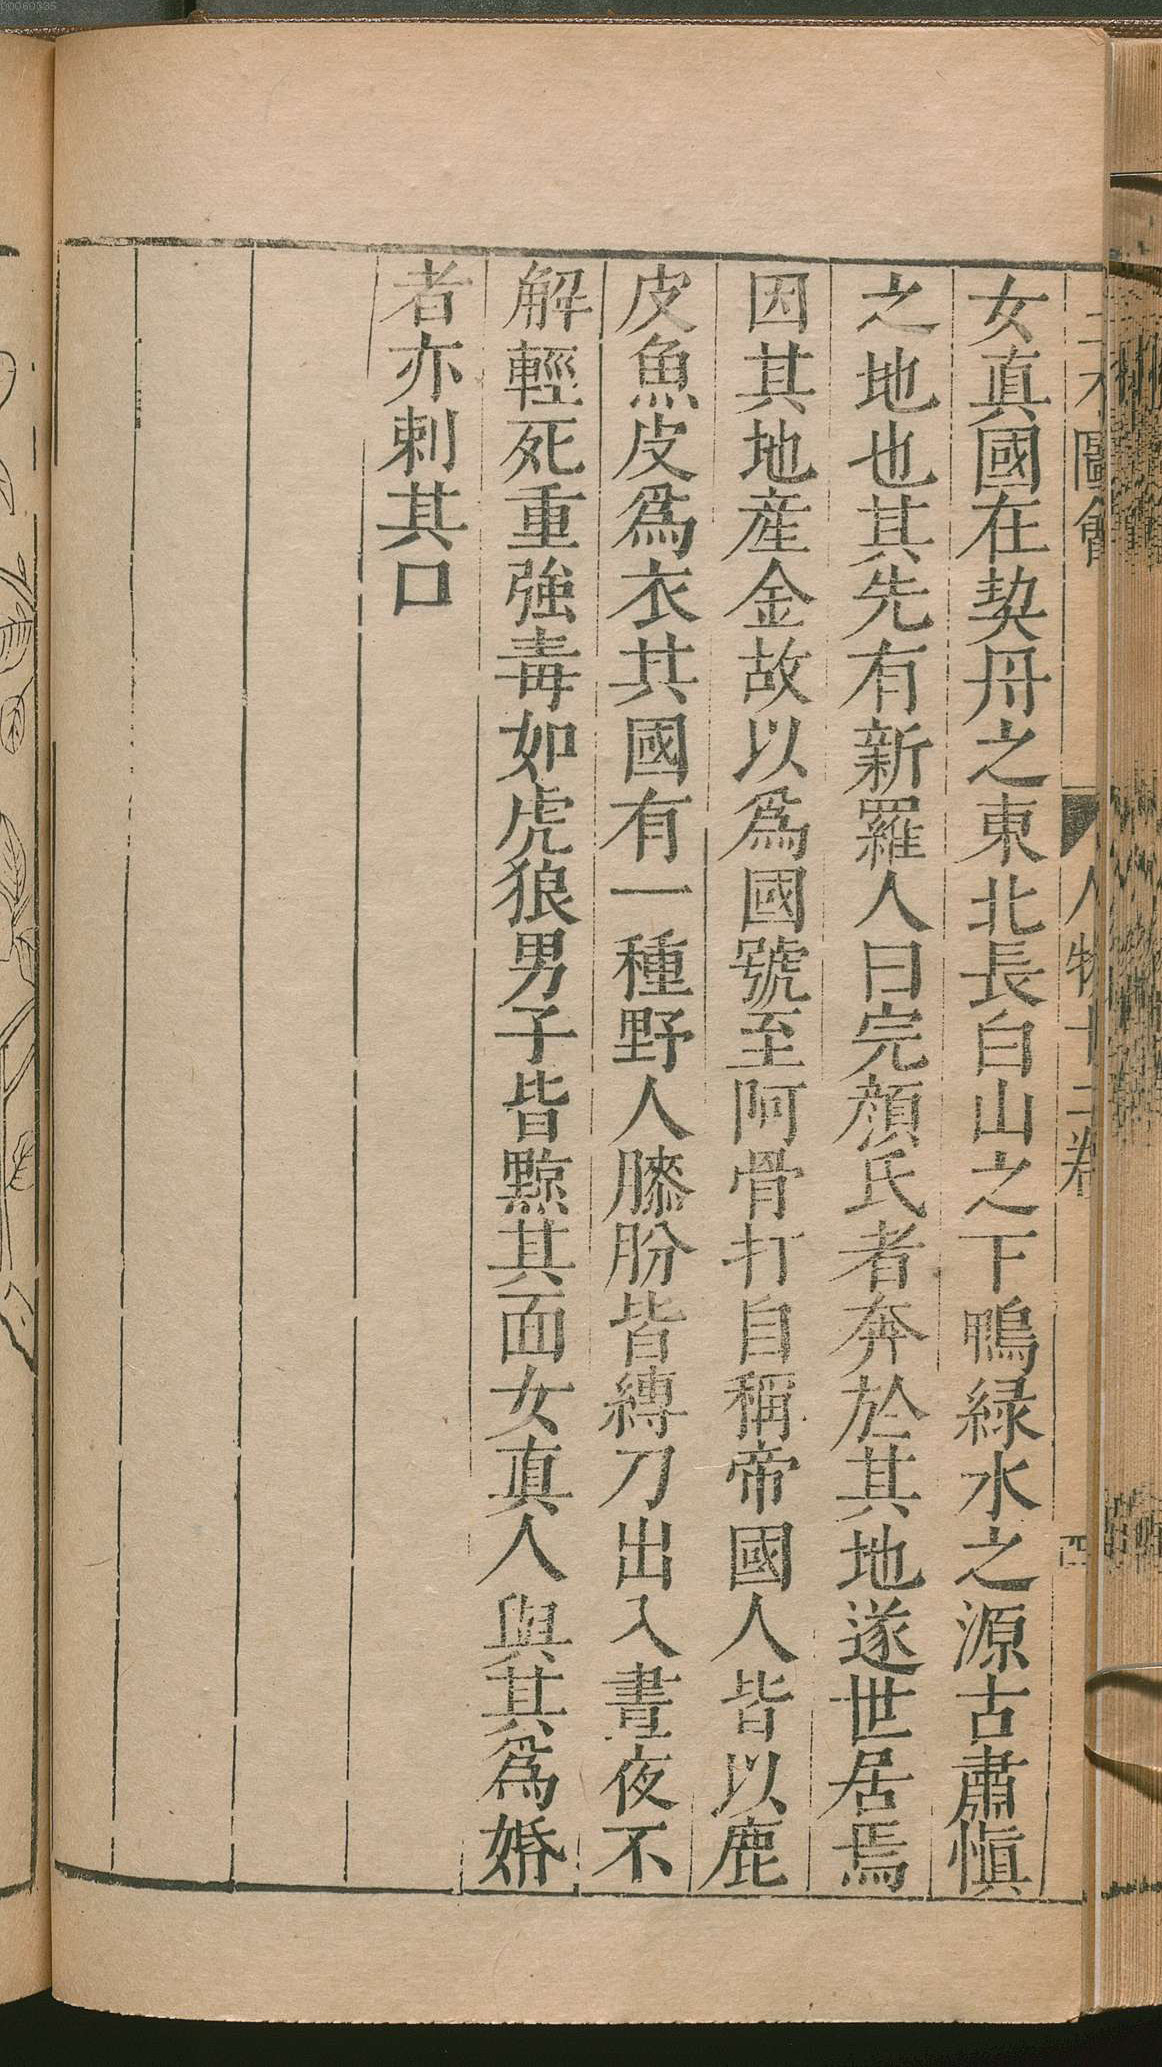 三才圖會 人物十二卷 四
女真國在契丹之東北長白山之下鴨緑水之源古肅慎
之地也其先有新羅人曰完顔氏者奔於其地遂世居焉
因其地産金故以爲國號至阿骨打自稱帝國人皆以鹿
皮魚皮爲衣其國有一種野人䐶肦皆縳刀出入晝夜不
解輕死重強毒如虎狼男子皆黥其面女真人與其爲婚
者亦刺其口
00060335